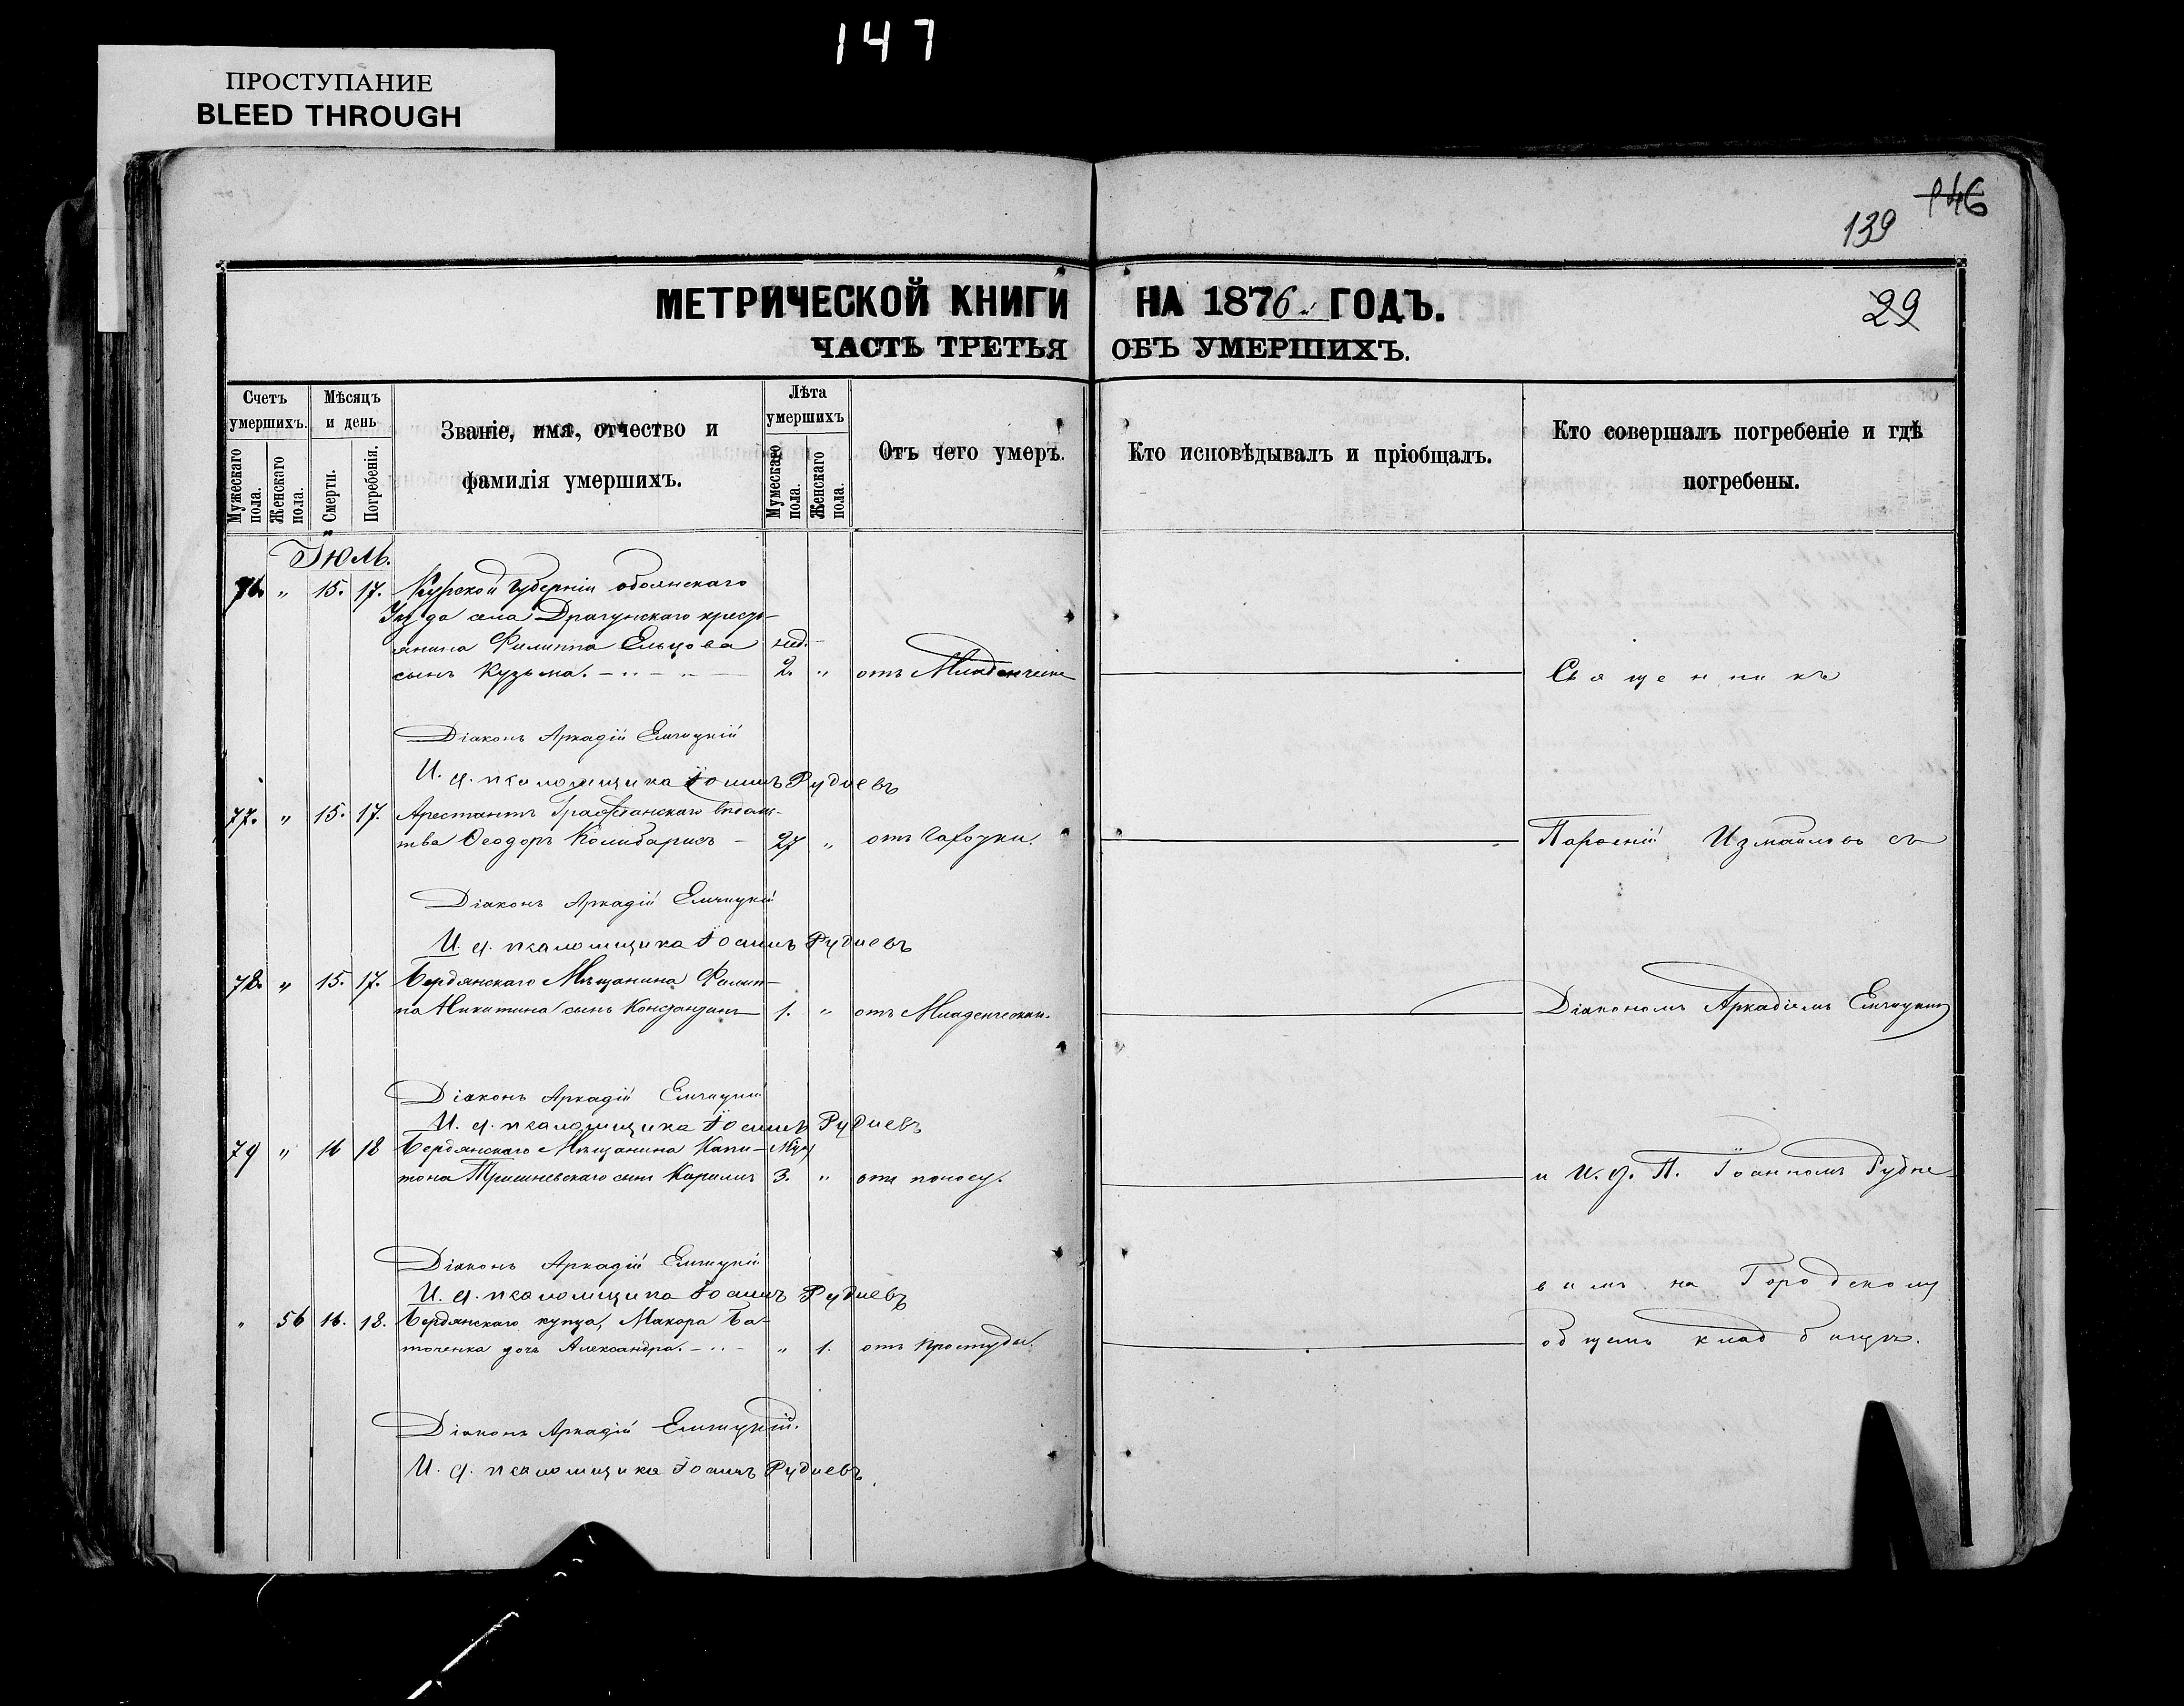 147
ПРОСТУПАНИЕ
BLEED THROUGH
146
139
МЕТРИЧЕСКОЙ КНИГИ НА 1876 ГОДЪ.
29
ЧАСТЬ ТРЕТЬЯ ОБЪ УМЕРШИХЪ.
Счетъ умершихъ.
Мужескаго пола.
Женскаго пола.
Мѣсяцъ и день
Смерти.
Погребенія.
Званіе, имя, отчество и
фамилія умершихъ.
Лѣта умершихъ
Мужескаго пола.
Женскаго пола.
Отъ чего умеръ.
Кто исповѣдывалъ и пріобщалъ.
Кто совершалъ погребеніе и гдѣ
погребены.
Іюль.
76. " 15. 17. Курской Губерніи обоянскаго
Уѣзда села Драгунскаго кресть-
янина Филиппа Ельцова нед.
сынъ Кузьма. 2. " отъ Младенческ Священникъ
Діаконъ Аркадій Емчицкій
И. д. псаломщика Іоаннъ Рудневъ
77. " 15. 17. Арестантъ Гражданскаго вѣдомс-
тва Ѳеодоръ 27 " отъ Чахотки. Измаиловъ съ
Діаконъ Аркадій Емчицкій
И. д. псаломщика Іоаннъ Рудневъ
78. " 15. 17. Бердянскаго Мѣщанина Филип-
па Никитина сынъ Константинъ 1. " отъ Младенческ. Діакономъ Аркадіемъ Емчицким
Діаконъ Аркадій Емчицкій
И. д. псаломщика Іоаннъ Рудневъ
79 " 16 18 Бердянскаго Мѣщанина Капи-
тона сынъ Кириллъ 3. " отъ поносу. и И. д. П. Іоанномъ Рудне-
Діаконъ Аркадій Емчицкій
И. д. псаломщика Іоаннъ Рудневъ
вымъ на Городскому
" 56 16. 18. Бердянскаго купца, Макара Ба-
точенка дочь Александра. " 1. отъ простуды. общемъ кладбищѣ.
Діаконъ Аркадій Емчицкій.
И. д. псаломщика Іоаннъ Рудневъ